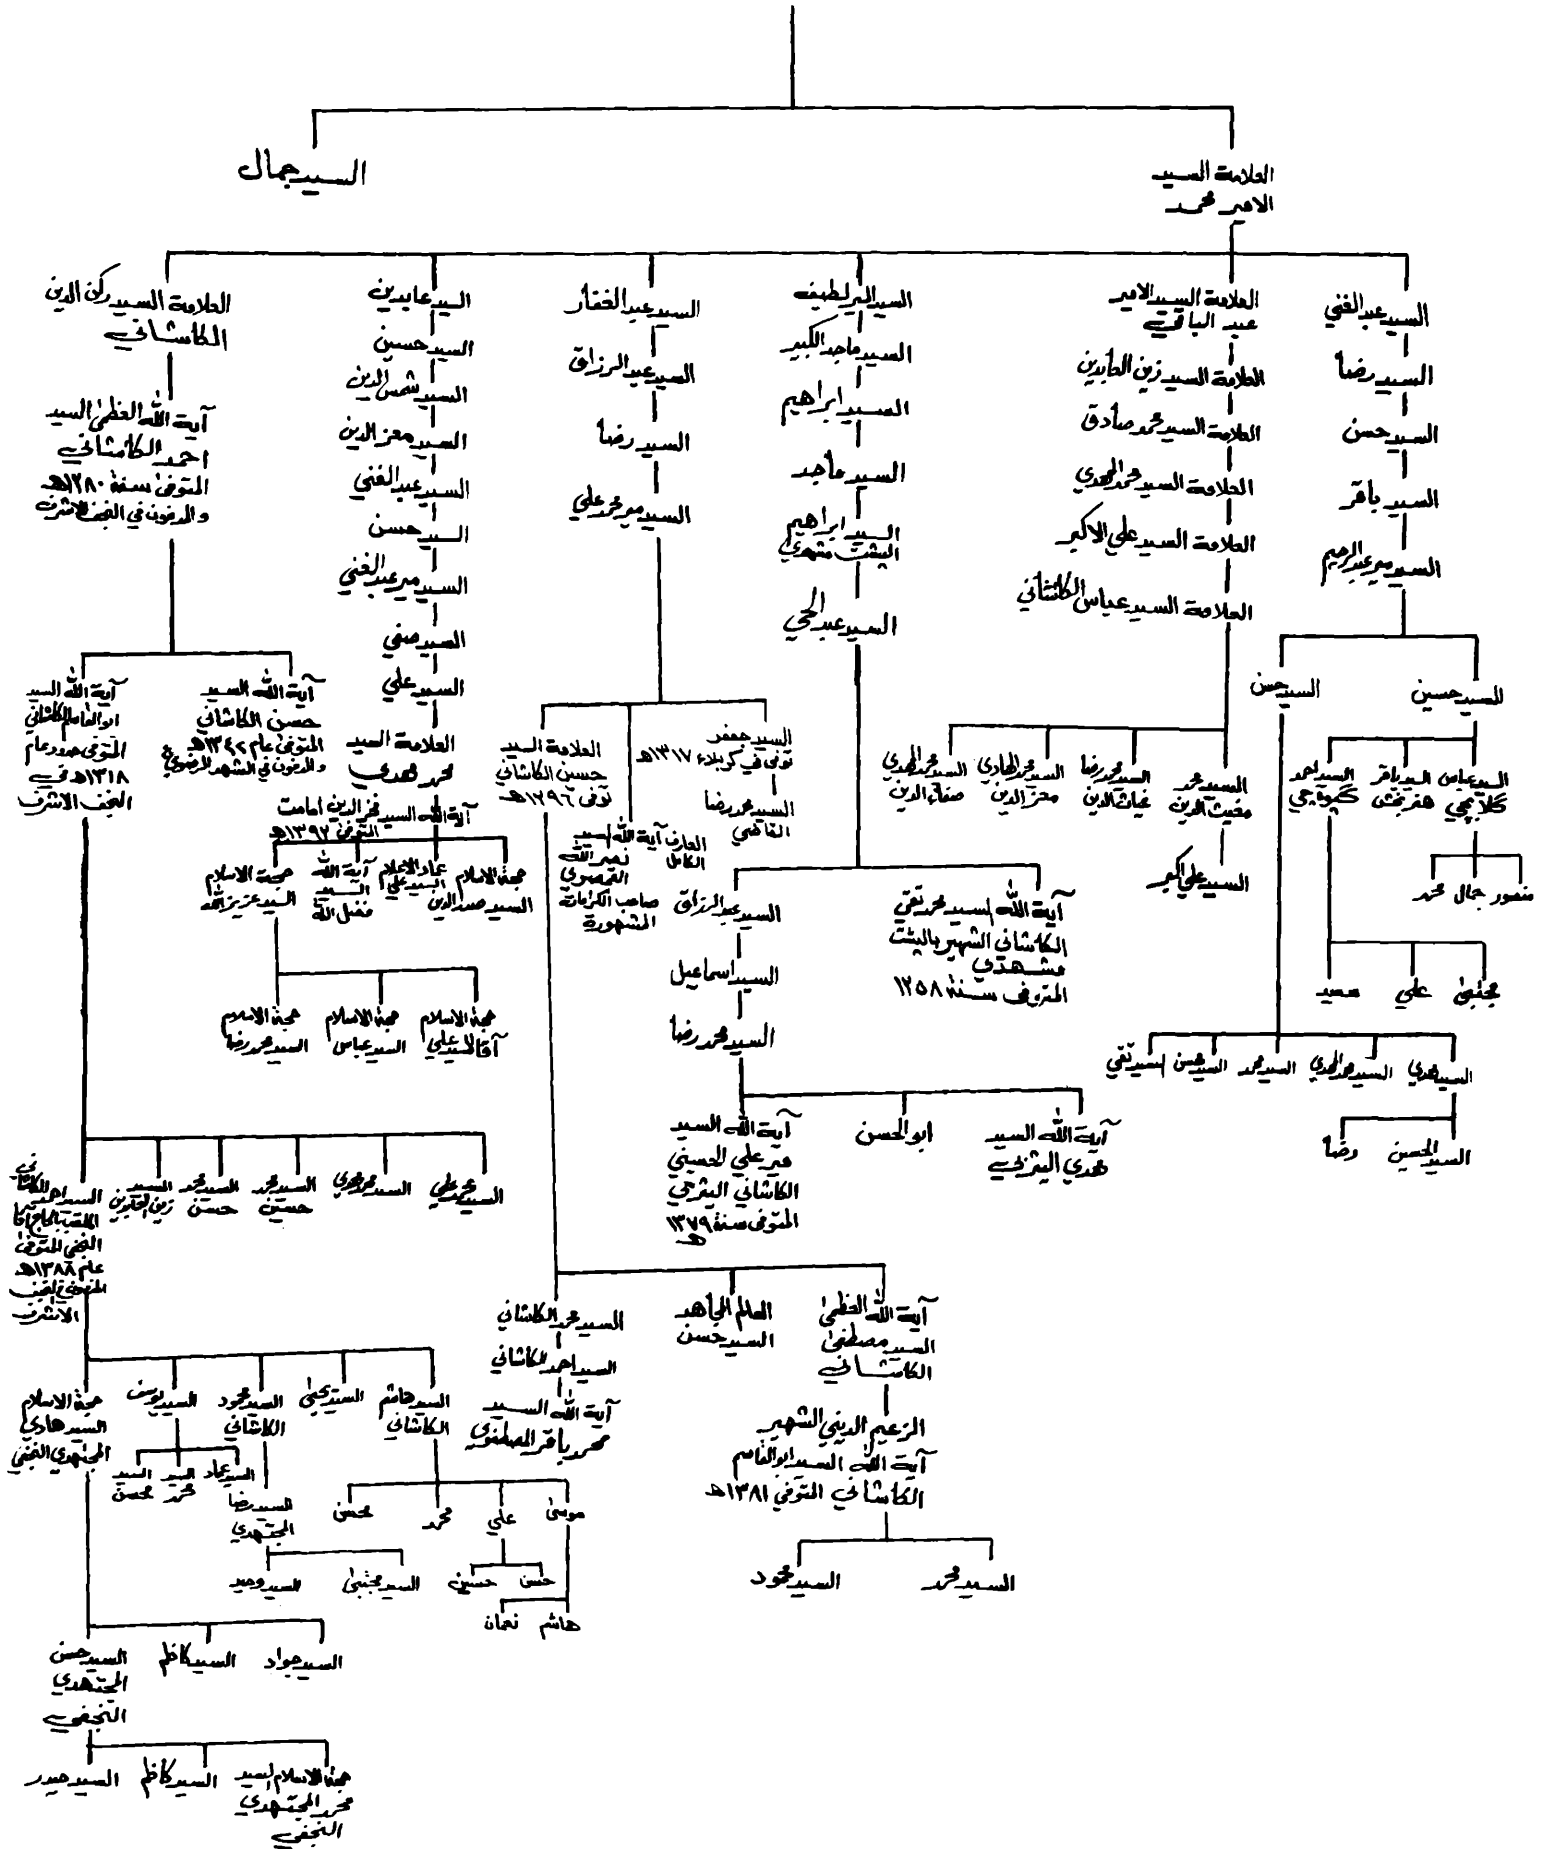 السيد جمال
العلامة السيد
الامير محمد
السيد عبد الغني
السيد رضا
السيد حسن
السيد باقر
السيد مير عبد الرحيم
السيد حسين
السيد عباس
السيد باقر
السيد احمد
منصور جمال محمد
مجتبى علي سعيد
السيد حسن
السيد مهدي
السيد محمد المهدي
السيد محمد
السيد محسن
السيد تقي
السيد الحسين رضا
العلامة السيد الامير
عبد الباقي
العلامة السيد زين العابدين
العلامة السيد محمد صادق
العلامة السيد محمد المهدي
العلامة السيد علي الاكبر
العلامة السيد عباس الكاشاني
السيد محمد
مغيث الدين
السيد محمد رضا
غياث الدين
السيد محمد الهادي
معز الدين
السيد محمد المهدي
صفاء الدين
السيد علي اكبر
السيد المير لطيف
السيد ماجد الكبير
السيد ابراهيم
السيد ماجد
السيد ابراهيم
البشت مشهدي
السيد عبد الحي
آية الله السيد محمد تقي
الكاشاني الشهير بالبشت
مشهدي
المتوفى سنة ١٢٥٨
السيد عبد الرزاق
السيد اسماعيل
السيد محمد رضا
آية الله السيد
مهدي اليثربي
ابو الحسن
آية الله السيد
مير علي الحسيني
الكاشاني اليثربي
المتوفى سنة ١٣٧٩
هـ
السيد عبد الغفار
السيد عبد الرزاق
السيد رضا
السيد مير محمد علي
السيد جعفر
توفى في كربلاء ١٣١٧هـ
السيد محمد رضا
القاضي
العارف آية الله السيد
الكامل نصر الله
القمصوي
صاحب الكرامات
المشهورة
العلامة السيد
حسين الكاشاني
توفى ١٢٩٦هـ
آية الله العظمى
السيد مصطفى
الكاشاني
العالم المجاهد
السيد حسن
السيد محمد الكاشاني
السيد احمد الكاشاني
آية الله السيد
محمد باقر المصطفوي
الزعيم الديني الشهير
آية الله السيد ابو القاسم
الكاشاني المتوفى ١٣٨١هـ
السيد محمد
السيد محمود
السيد عابدين
السيد حسين
السيد شمس الدين
السيد معز الدين
السيد عبد الغني
السيد حسن
السيد مير عبد الغني
السيد صفي
السيد علي
العلامة السيد
محمد مهدي
آية الله السيد فخر الدين امامت
المتوفى ١٣٩٢هـ
حجة الاسلام
السيد صدر الدين
عماد الاعلام
السيد علي
آية الله
السيد
فضل الله
حجة الاسلام
السيد عزيز الله
حجة الاسلام
آقا السيد علي
حجة الاسلام
السيد عباس
حجة الاسلام
السيد محمد رضا
العلامة السيد ركن الدين
الكاشاني
آية الله العظمى السيد
احمد الكاشاني
المتوفى سنة ١٢٨٠هـ
والمدفون في النجف الاشرف
آية الله السيد
حسن الكاشاني
المتوفى عام ١٣٤٢هـ
والمدفون في المشهد الرضوي
آية الله السيد
ابو القاسم الكاشاني
المتوفى حدود عام
١٣١٨هـ في
النجف الاشرف
السيد محمد علي
السيد محمد مهدي
السيد محمد
حسين
السيد محمد
حسن
السيد
زين العابدين
السيد احمد الكاشاني
الملقب بالحاج آقا
النجفي المتوفى
عام ١٣٨٨هـ
المدفون في النجف
الاشرف
السيد هاشم
الكاشاني
السيد يحيى
السيد محمود
الكاشاني
السيد يوسف
حجة الاسلام
السيد هادي
المجتهدي النجفي
السيد عماد
السيد
محمد
السيد
محسن
السيد رضا
المجتهدي
موسى علي محمد محسن
السيد مجتبى
السيد وحيد
حسن حسين
هاشم نعمان
السيد جواد
السيد كاظم
السيد حسن
المجتهدي
النجفي
حجة الاسلام السيد
محمد المجتهدي
النجفي
السيد كاظم
السيد حيدر